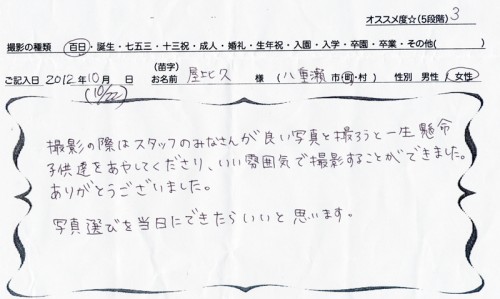 オススメ度☆(5段階) 3
撮影の種類 百日・誕生・七五三・十三祝・成人・婚礼・生年祝・入園・入学・卒園・卒業・その他( )
(苗字)
ご記入日 2012年10月 日 お名前 屋比久 様 (八重瀬 市・町・村) 性別 男性 女性
(10/22)
撮影の際はスタッフのみなさんが良い写真を撮ろうと一生懸命
子供達をあやしてくださり、いい雰囲気で撮影することができました。
ありがとうございました。
写真選びを当日にできたらいいと思います。